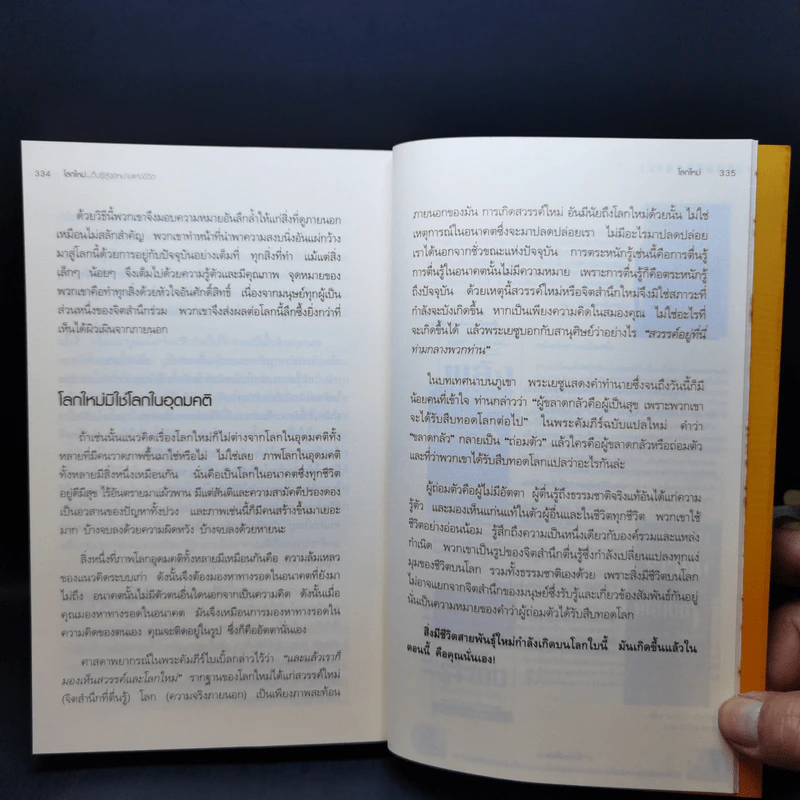 334 โลกใหม่...ตื่นรู้สู่จุดหมายแห่งชีวิต
ด้วยวิธีนี้พวกเขาจึงมอบความหมายอันลึกล้ำให้แก่สิ่งที่ดูภายนอก
เหมือนไม่สลักสำคัญ พวกเขาทำหน้าที่นำพาความสงบนิ่งอันแผ่กว้าง
มาสู่โลกนี้ด้วยการอยู่กับปัจจุบันอย่างเต็มที่ ทุกสิ่งที่ทำ แม้แต่สิ่ง
เล็กๆ น้อยๆ จึงเต็มไปด้วยความรู้ตัวและมีคุณภาพ จุดหมายของ
พวกเขาคือทำทุกสิ่งด้วยหัวใจอันศักดิ์สิทธิ์ เนื่องจากมนุษย์ทุกผู้เป็น
ส่วนหนึ่งของจิตสำนึกร่วม พวกเขาจึงส่งผลต่อโลกนี้ลึกซึ้งยิ่งกว่าที่
เห็นได้ผิวเผินจากภายนอก
โลกใหม่มิใช่โลกในอุดมคติ
ถ้าเช่นนั้นแนวคิดเรื่องโลกใหม่ก็ไม่ต่างจากโลกในอุดมคติทั้ง
หลายที่มีคนวาดภาพขึ้นมาใช่หรือไม่ ไม่ใช่เลย ภาพโลกในอุดมคติ
ทั้งหลายมีสิ่งหนึ่งเหมือนกัน นั่นคือเป็นโลกในอนาคตซึ่งทุกชีวิต
อยู่ดีมีสุข ไร้อันตรายมาแผ้วพาน มีแต่สันติและความสามัคคีปรองดอง
เป็นอวสานของปัญหาทั้งปวง และภาพเช่นนี้ก็มีคนสร้างขึ้นมาเยอะ
มาก บ้างจบลงด้วยความผิดหวัง บ้างจบลงด้วยหายนะ
สิ่งหนึ่งที่ภาพโลกอุดมคติทั้งหลายมีเหมือนกันคือ ความล้มเหลว
ของแนวคิดระบบเก่า ดังนั้นจึงต้องมองหาทางรอดในอนาคตที่ยังมา
ไม่ถึง อนาคตนั้นไม่มีตัวตนอื่นใดนอกจากเป็นความคิด ดังนั้นเมื่อ
คุณมองหาทางรอดในอนาคต มันจึงเหมือนการมองหาทางรอดใน
ความคิดของตนเอง คุณจะติดอยู่ในรูป ซึ่งก็คืออัตตานั่นเอง
ศาสดาพยากรณ์ในพระคัมภีร์ไบเบิ้ลกล่าวไว้ว่า “และแล้วเราก็
มองเห็นสวรรค์และโลกใหม่” รากฐานของโลกใหม่ได้แก่สวรรค์ใหม่
(จิตสำนึกที่ตื่นรู้) โลก (ความจริงภายนอก) เป็นเพียงภาพสะท้อน
โลกใหม่ 335
ภายนอกของมัน การเกิดสวรรค์ใหม่ อันมีนัยถึงโลกใหม่ด้วยนั้น ไม่ใช่
เหตุการณ์ในอนาคตซึ่งจะมาปลดปล่อยเรา ไม่มีอะไรมาปลดปล่อย
เราได้นอกจากชั่วขณะแห่งปัจจุบัน การตระหนักรู้เช่นนี้คือการตื่นรู้
การตื่นรู้ในอนาคตนั้นไม่มีความหมาย เพราะการตื่นรู้ก็คือตระหนักรู้
ถึงปัจจุบัน ด้วยเหตุนี้สวรรค์ใหม่หรือจิตสำนึกใหม่จึงมิใช่สภาวะที่
กำลังจะบังเกิดขึ้น หากเป็นเพียงความคิดในสมองคุณ ไม่ใช่อะไรที่
จะเกิดขึ้นได้ แล้วพระเยซูบอกกับสานุศิษย์ว่าอย่างไร “สวรรค์อยู่ที่นี่
ท่ามกลางพวกท่าน”
ในบทเทศนาบนภูเขา พระเยซูแสดงคำทำนายซึ่งจนถึงวันนี้ก็มี
น้อยคนที่เข้าใจ ท่านกล่าวว่า “ผู้ขลาดกลัวคือผู้เป็นสุข เพราะพวกเขา
จะได้รับสืบทอดโลกต่อไป” ในพระคัมภีร์ฉบับแปลใหม่ คำว่า
“ขลาดกลัว” กลายเป็น “ถ่อมตัว” แล้วใครคือผู้ขลาดกลัวหรือถ่อมตัว
และที่ว่าพวกเขาได้รับสืบทอดโลกแปลว่าอะไรกันล่ะ
ผู้ถ่อมตัวคือผู้ไม่มีอัตตา ผู้ตื่นรู้ถึงธรรมชาติจริงแท้อันได้แก่ความ
รู้ตัว และมองเห็นแก่นแท้ในตัวผู้อื่นและในชีวิตทุกชีวิต พวกเขาใช้
ชีวิตอย่างอ่อนน้อม รู้สึกถึงความเป็นหนึ่งเดียวกับองค์รวมและแหล่ง
กำเนิด พวกเขาเป็นรูปของจิตสำนึกตื่นรู้ซึ่งกำลังเปลี่ยนแปลงทุกแง่
มุมของชีวิตบนโลก รวมทั้งธรรมชาติเองด้วย เพราะสิ่งมีชีวิตบนโลก
ไม่อาจแยกจากจิตสำนึกของมนุษย์ซึ่งรับรู้และเกี่ยวข้องสัมพันธ์กันอยู่
นั่นเป็นความหมายของคำว่าผู้ถ่อมตัวได้รับสืบทอดโลก
สิ่งมีชีวิตสายพันธุ์ใหม่กำลังเกิดบนโลกใบนี้ มันเกิดขึ้นแล้วใน
ตอนนี้ คือคุณนั่นเอง!